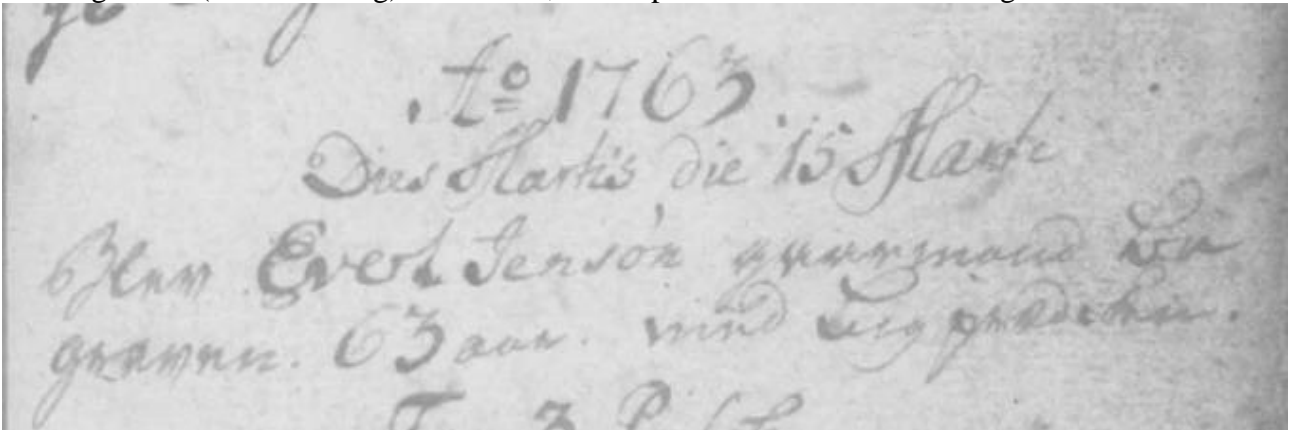 Ao 1763.
Dies Martis die 15 Marti
Blev Evert Jensøn gaarmand Be
graven. 63 aar. med Lig prædiken.